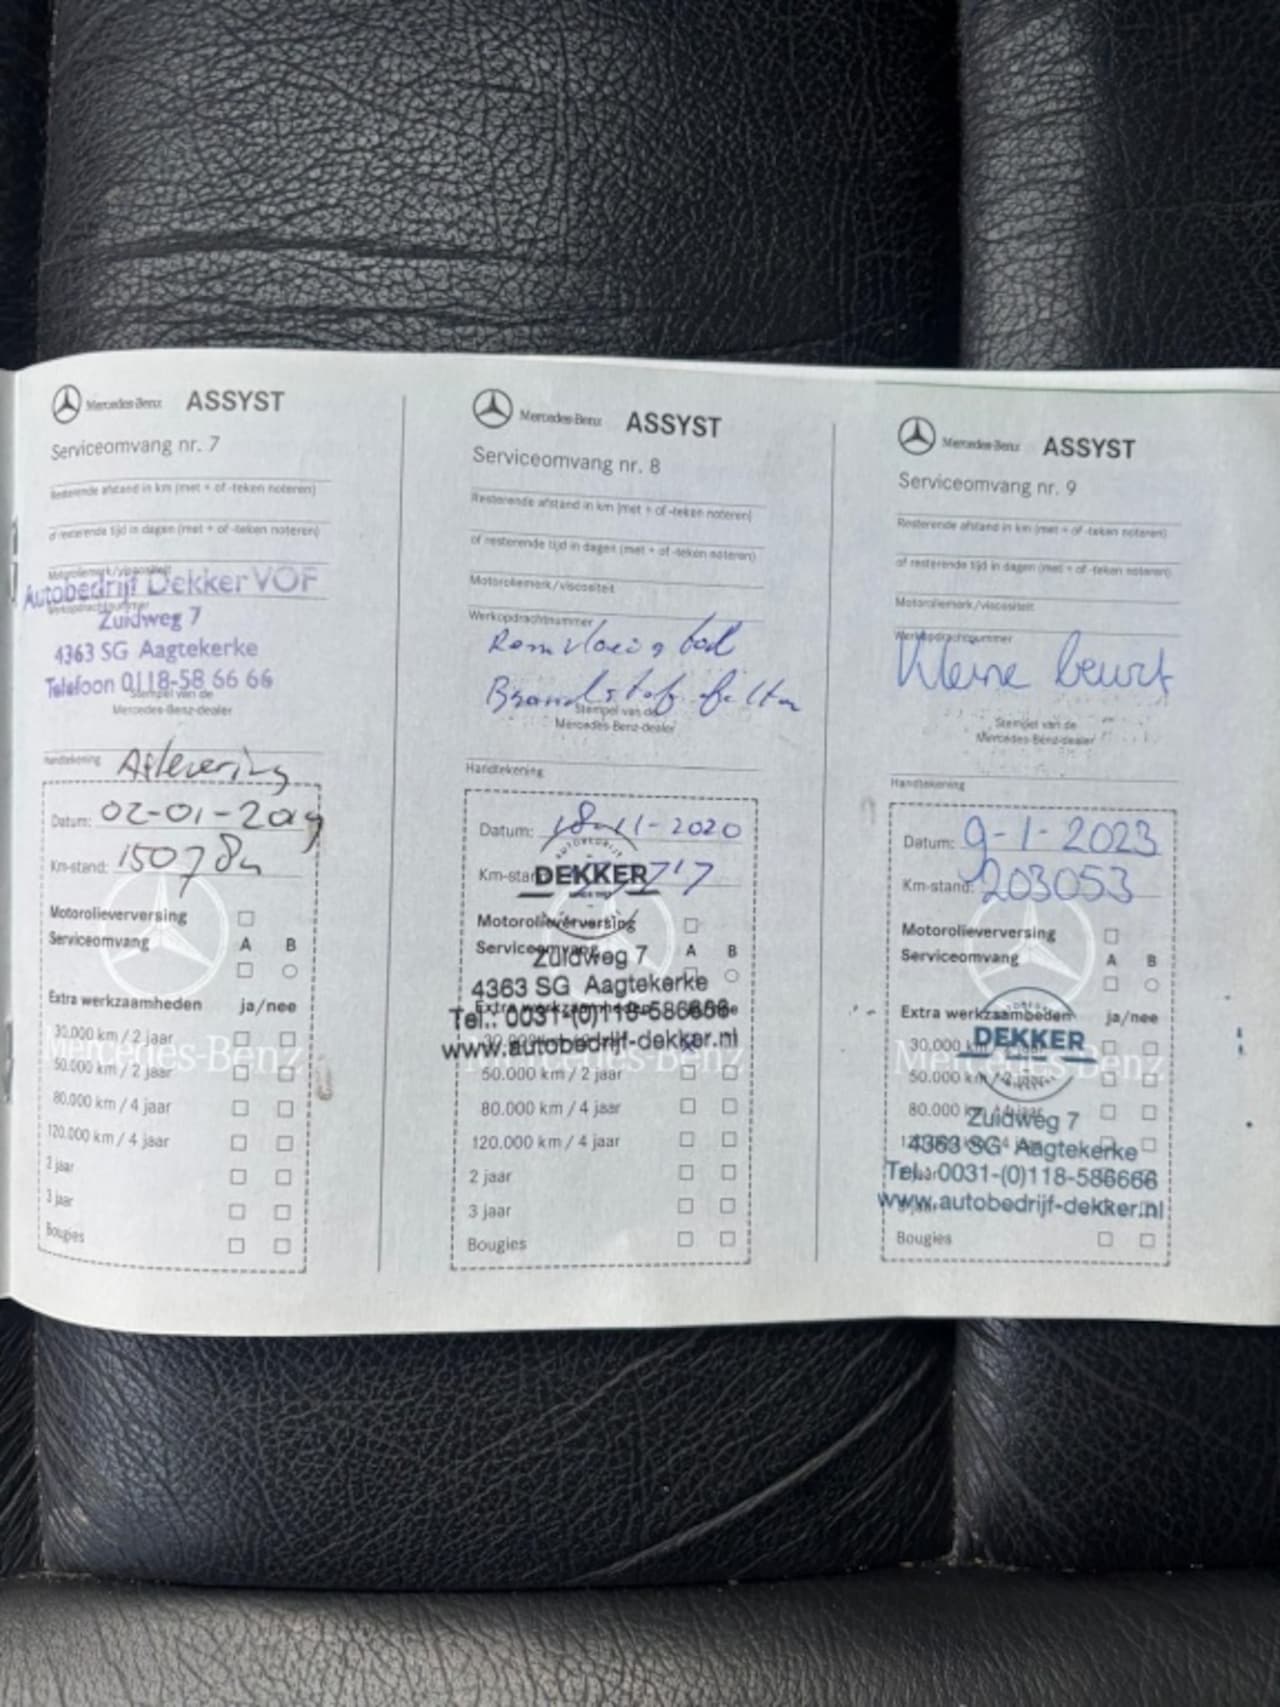 Mercedes-Benz ASSYST
Serviceomvang nr. 7
Resterende afstand in km (met + of -teken noteren)
of resterende tijd in dagen (met + of -teken noteren)
Motoroliemerk/viscositeit
Autobedrijf Dekker VOF
Werkopdrachtnummer
Zuidweg 7
4363 SG Aagtekerke
Telefoon 0118-58 66 66
Stempel van de
Mercedes-Benz-dealer
Handtekening
Aflevering
Datum: 02-01-2019
Km-stand: 150784
Motorolieverversing
Serviceomvang A B
Extra werkzaamheden ja/nee
30.000 km / 2 jaar
Mercedes-Benz
50.000 km / 2 jaar
80.000 km / 4 jaar
120.000 km / 4 jaar
2 jaar
3 jaar
Bougies
Mercedes-Benz ASSYST
Serviceomvang nr. 8
Resterende afstand in km (met + of -teken noteren)
of resterende tijd in dagen (met + of -teken noteren)
Motoroliemerk/viscositeit
Werkopdrachtnummer
Remvloeistof
Brandstoffilter
Stempel van de
Mercedes-Benz-dealer
Handtekening
Datum: 18-11-2020
AUTOBEDRIJF
Km-stand:
DEKKER
Motorolieverversing
Serviceomvang A B
Zuidweg 7
4363 SG Aagtekerke
Extra werkzaamheden
Tel.: 0031-(0)118-586666
www.autobedrijf-dekker.nl
50.000 km / 2 jaar
80.000 km / 4 jaar
120.000 km / 4 jaar
2 jaar
3 jaar
Bougies
Mercedes-Benz ASSYST
Serviceomvang nr. 9
Resterende afstand in km (met + of -teken noteren)
of resterende tijd in dagen (met + of -teken noteren)
Motoroliemerk/viscositeit
Werkopdrachtnummer
Kleine beurt
Stempel van de
Mercedes-Benz-dealer
Handtekening
Datum: 9-1-2023
Km-stand: 203053
Motorolieverversing
Serviceomvang A B
Extra werkzaamheden ja/nee
DEKKER
30.000 km
Mercedes-Benz
50.000 km / 2 jaar
80.000 km / 4 jaar
Zuidweg 7
4363 SG Aagtekerke
Tel.: 0031-(0)118-586666
www.autobedrijf-dekker.nl
Bougies